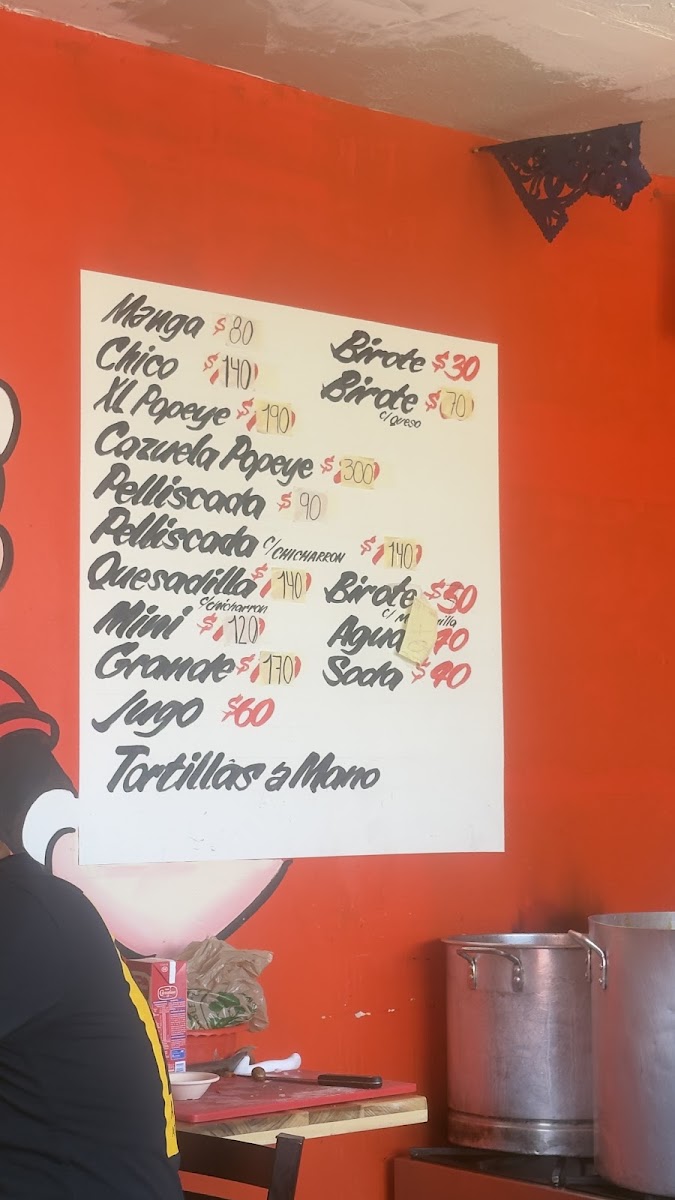 Manga $80
Chico $140
XL Popeye $190
Cazuela Popeye $300
Pelliscada $90
Pelliscada c/CHICHARRON $140
Quesadilla $140
c/chicharron
Mini $120
Grande $170
Jugo $60
Tortillas a Mano
Birote $30
Birote $70
c/queso
Birote $50
c/
Agua
Soda $40